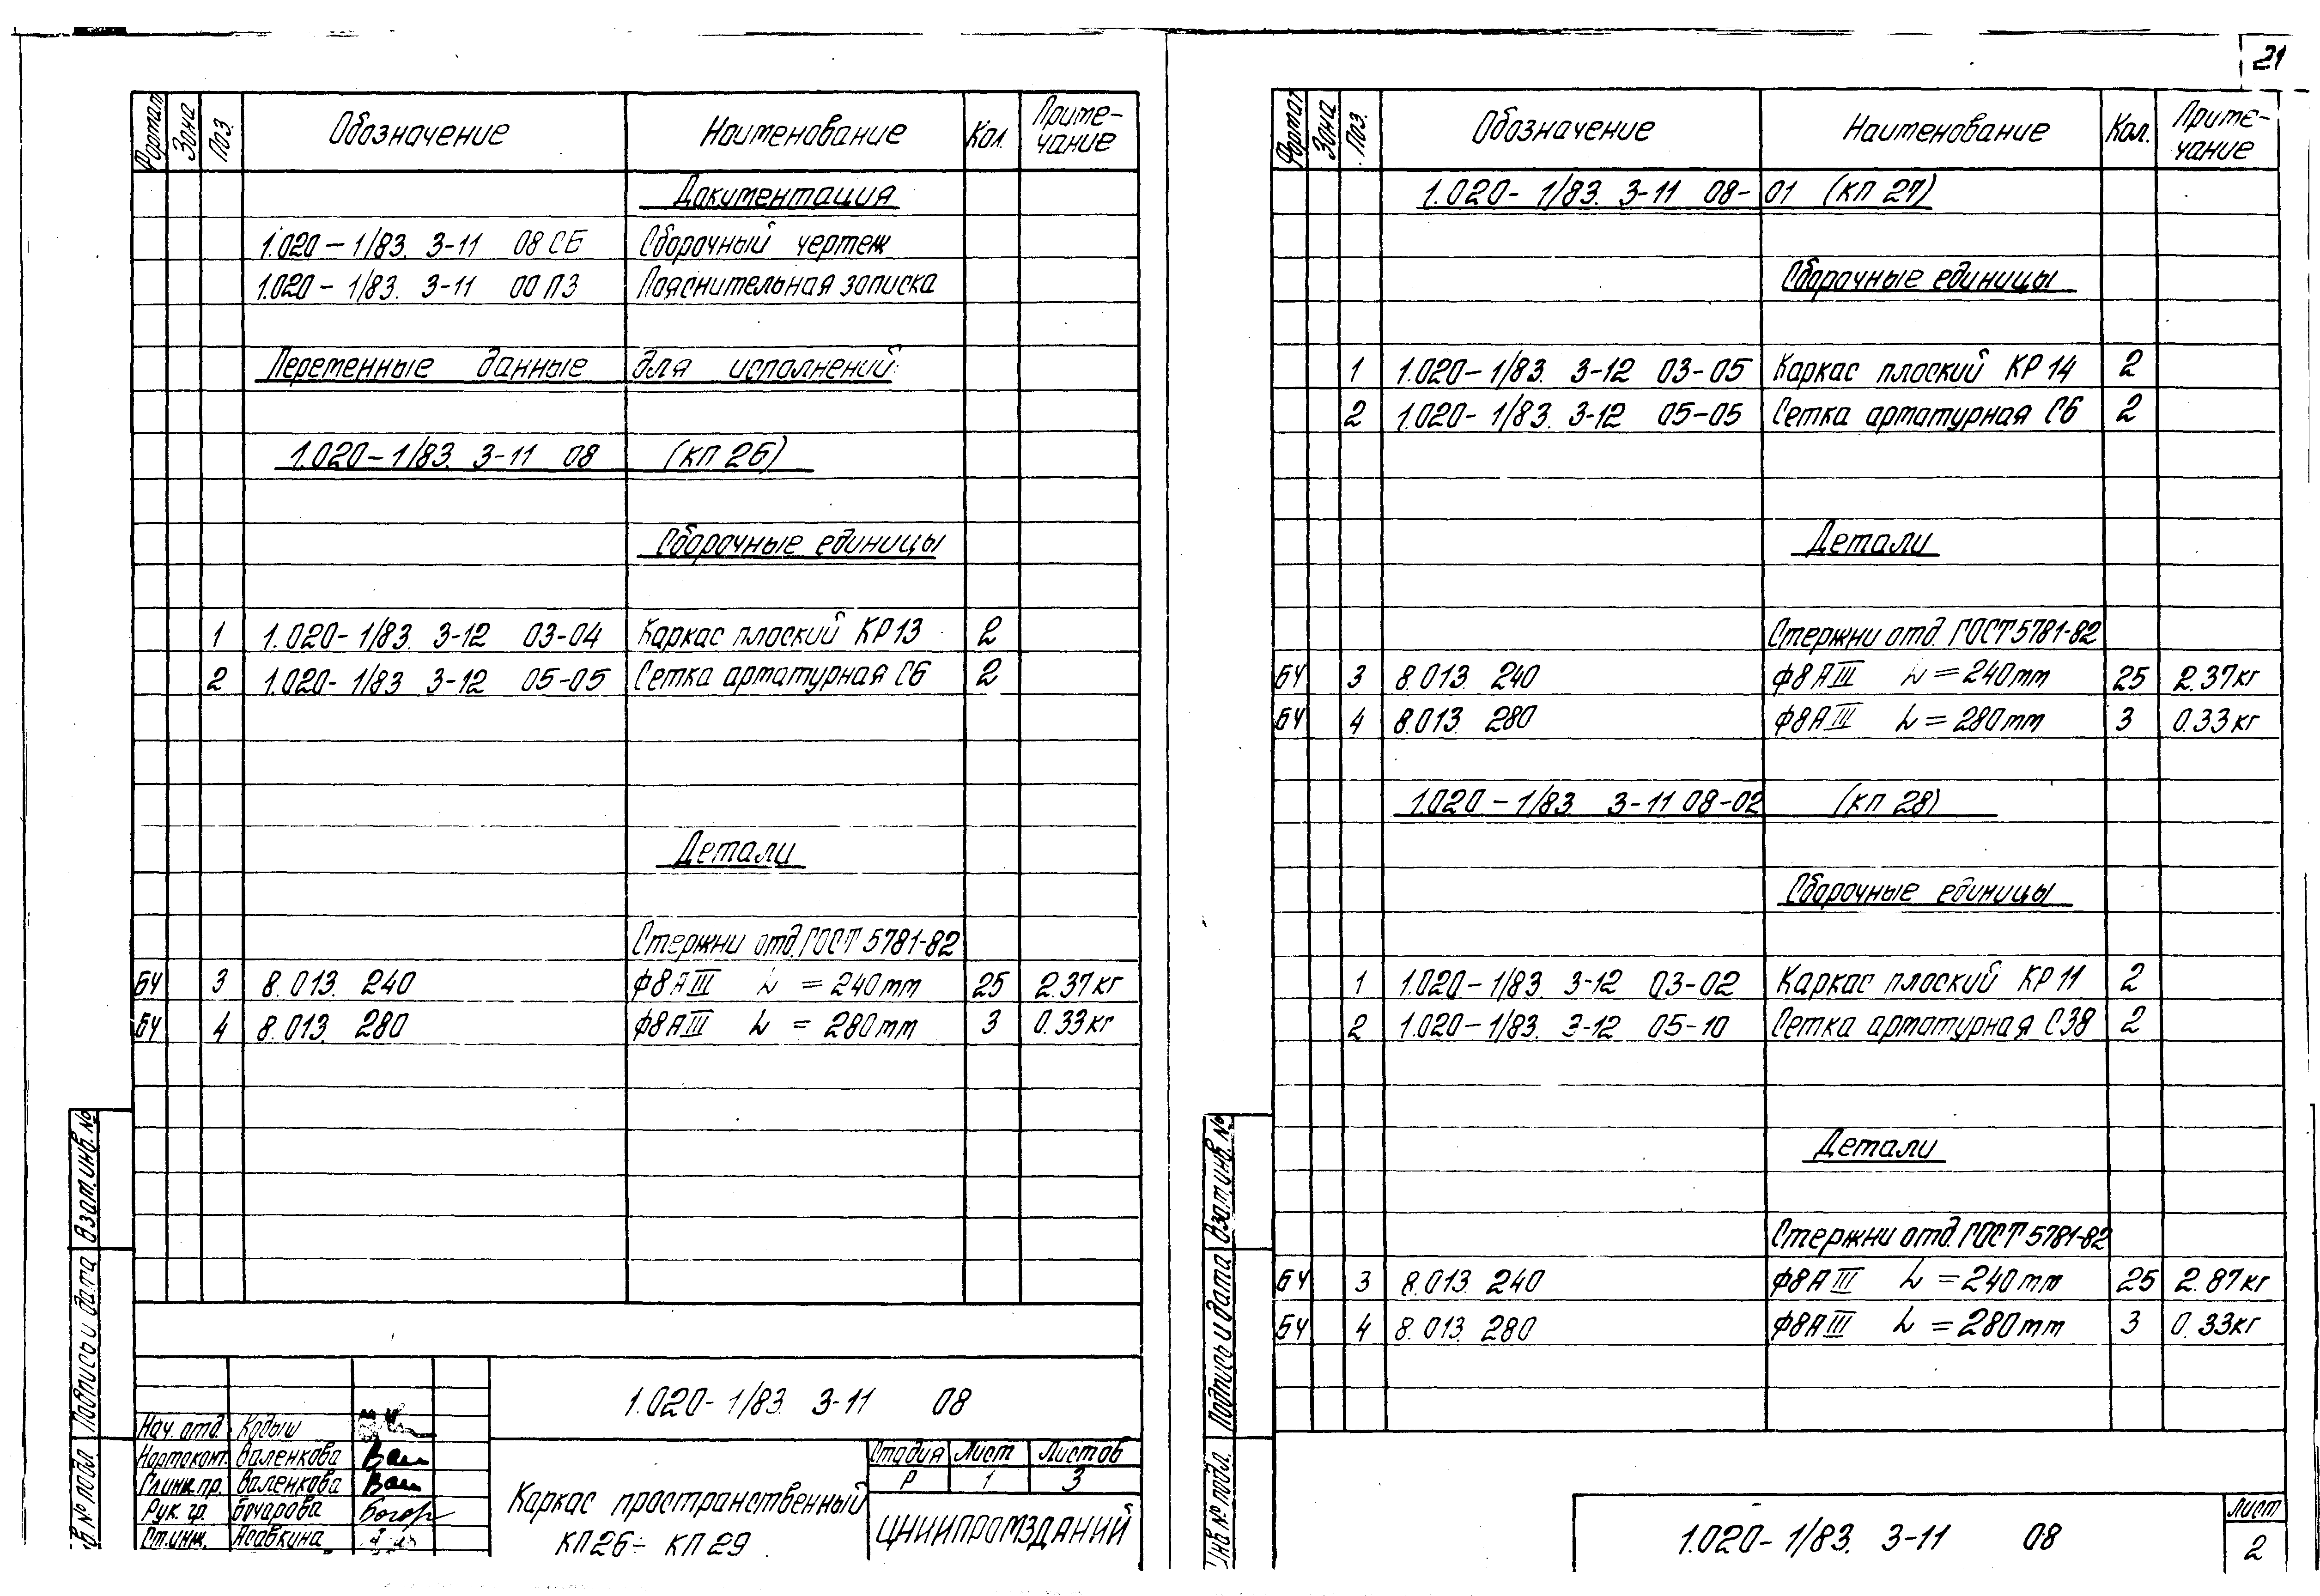 21
Формат Зона Поз. Обозначение Наименование Кол. Приме-
чание
Документация
1.020-1/83. 3-11 08 СБ Сборочный чертеж
1.020-1/83. 3-11 00 ПЗ Пояснительная записка
Переменные данные для исполнений:
1.020-1/83. 3-11 08 (КП 26)
Сборочные единицы
1 1.020-1/83. 3-12 03-04 Каркас плоский КР13 2
2 1.020-1/83 3-12 05-05 Сетка арматурная С6 2
Детали
Стержни отд. ГОСТ 5781-82
БЧ 3 8.013. 240 Ф8АIII L = 240мм 25 2.37кг
БЧ 4 8.013. 280 Ф8АIII L = 280мм 3 0.33кг
Взам. инв. №
Подпись и дата
Нач. отд. Кодыш
Нормоконт. Валенкова
Гл.инж.пр. Валенкова
Рук. гр. Бочарова
Ст.инж.
1.020-1/83. 3-11 08
Каркас пространственный
КП26÷ КП29
Стадия Лист Листов
Р 1 3
ЦНИИПРОМЗДАНИЙ
Формат Зона Поз. Обозначение Наименование Кол. Приме-
чание
1.020-1/83. 3-11 08-01 (КП 27)
Сборочные единицы
1 1.020-1/83. 3-12 03-05 Каркас плоский КР14 2
2 1.020-1/83. 3-12 05-05 Сетка арматурная С6 2
Детали
Стержни отд. ГОСТ 5781-82
БЧ 3 8.013. 240 Ф8АIII L = 240мм 25 2.37кг
БЧ 4 8.013. 280 Ф8АIII L = 280мм 3 0.33кг
1.020-1/83 3-11 08-02 (КП 28)
Сборочные единицы
1 1.020-1/83. 3-12 03-02 Каркас плоский КР11 2
2 1.020-1/83. 3-12 05-10 Сетка арматурная С38 2
Детали
Стержни отд. ГОСТ 5781-82
БЧ 3 8.013. 240 Ф8АIII L = 240мм 25 2.87кг
БЧ 4 8.013. 280 Ф8АIII L = 280мм 3 0.33кг
Взам. инв. №
Подпись и дата
Инв № подл.
1.020-1/83. 3-11 08
Лист
2